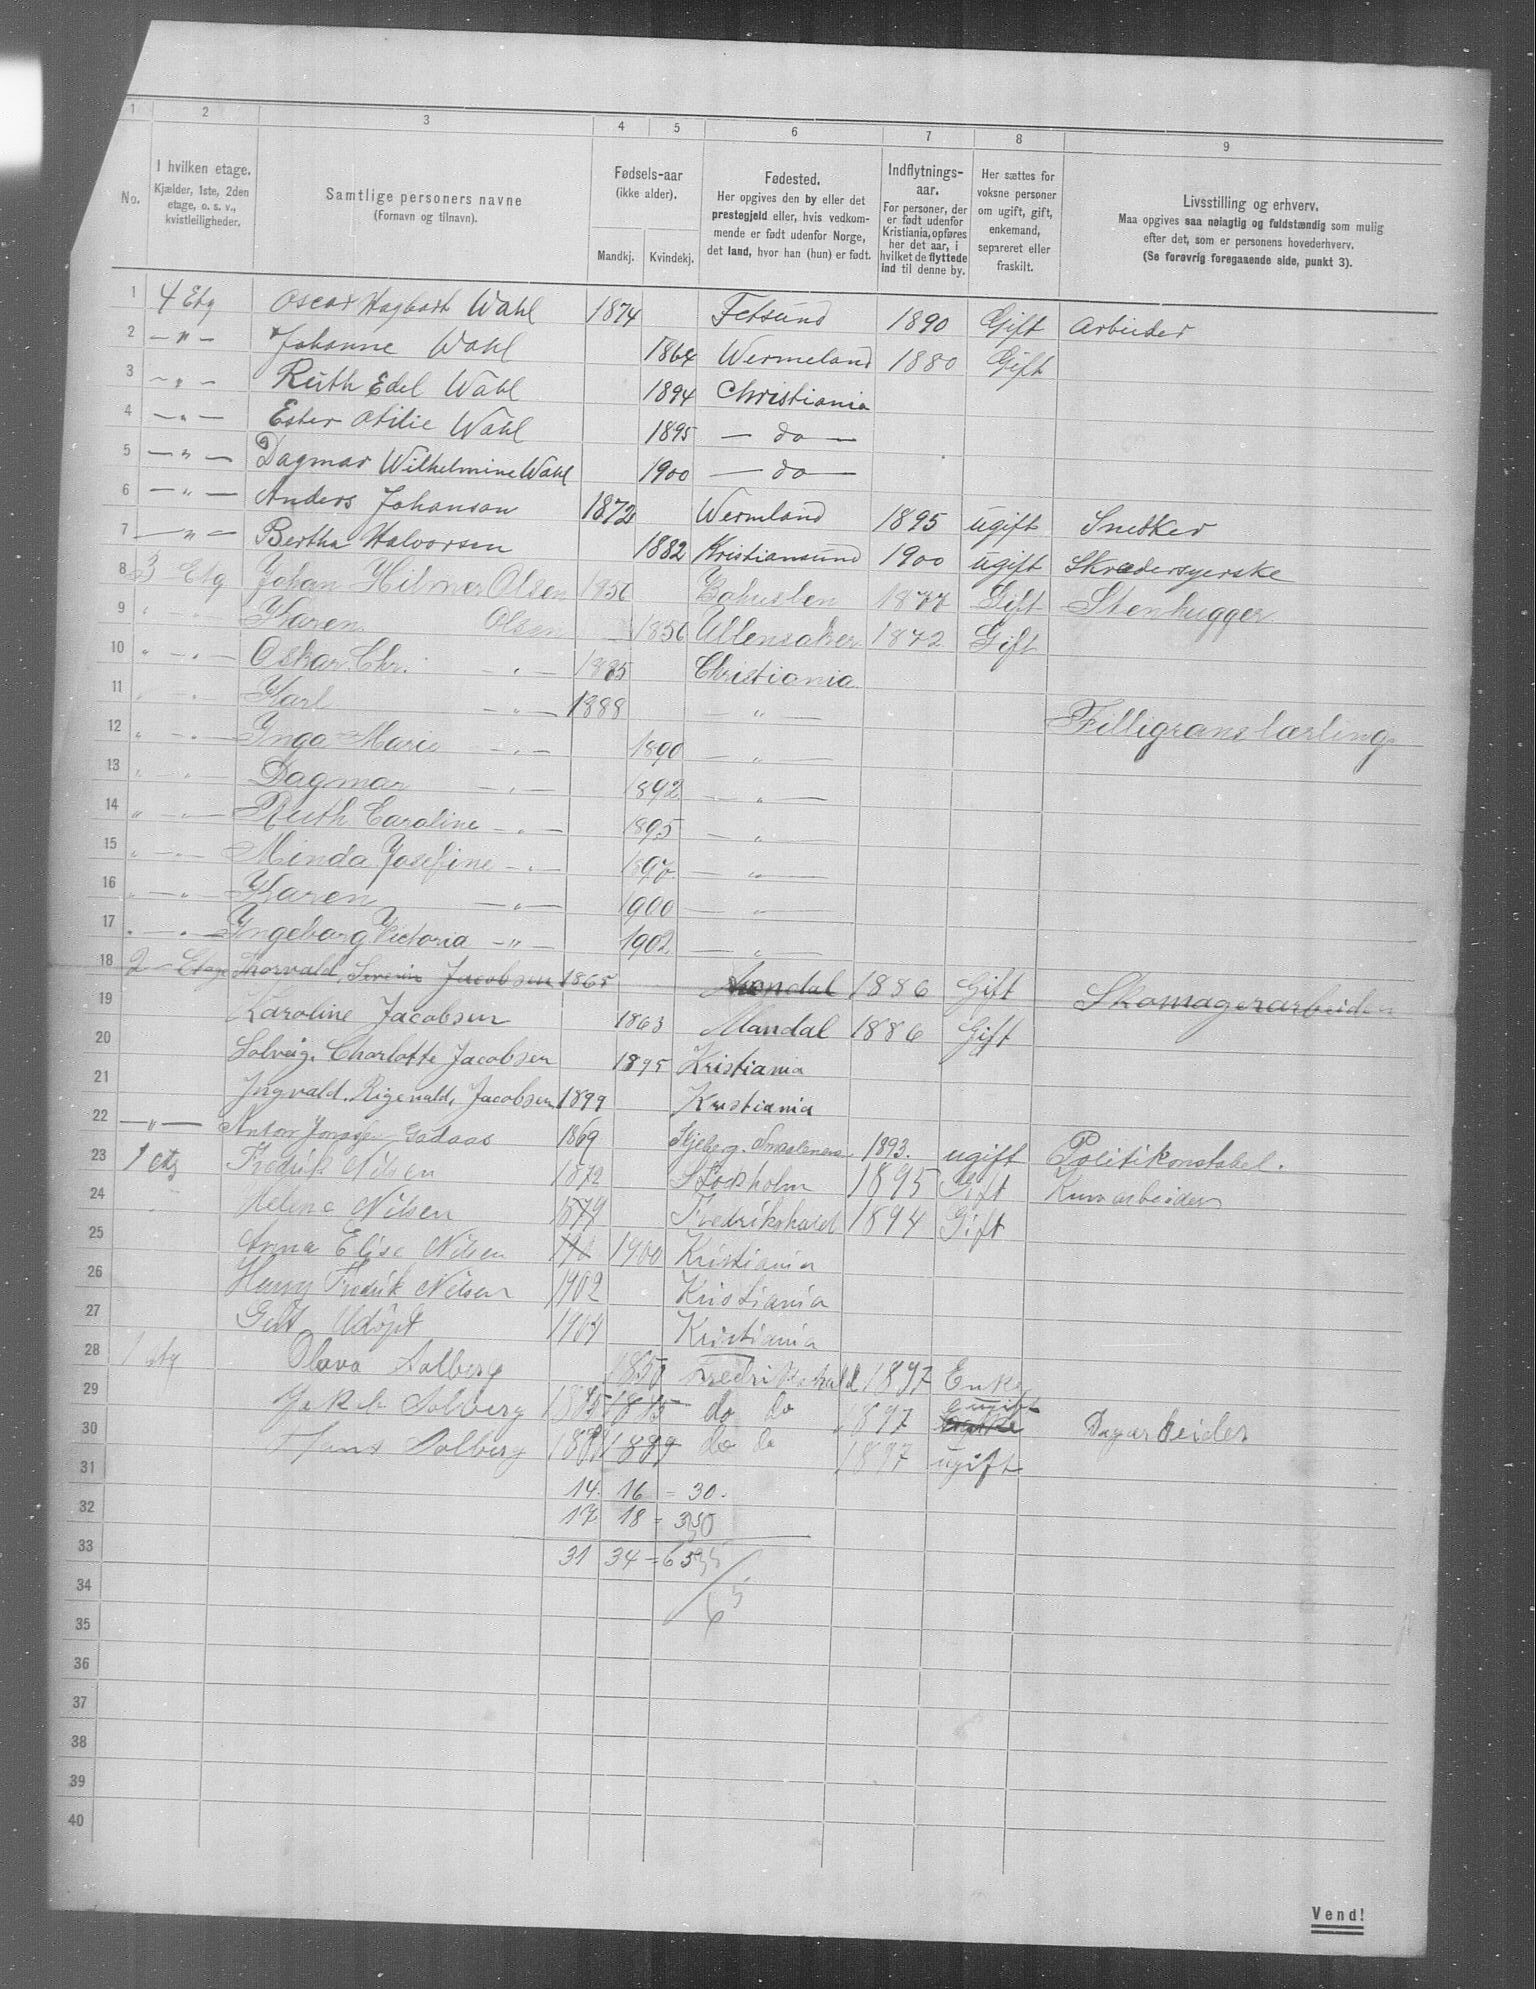 1 2 3 4 5 6 7 8 9
No.
I hvilken etage.
Kjælder, 1ste, 2den
etage, o. s. v.,
kvistleiligheder.
Samtlige personers navne
(Fornavn og tilnavn).
Fødsels-aar
(ikke alder).
Mandkj. Kvindekj.
Fødested.
Her opgives den by eller det
prestegjeld eller, hvis vedkom-
mende er født udenfor Norge,
det land, hvor han (hun) er født.
Indflytnings-
aar.
For personer, der
er født udenfor
Kristiania, opføres
her det aar, i
hvilket de flyttede
ind til denne by.
Her sættes for
voksne personer
om ugift, gift,
enkemand,
separeret eller
fraskilt.
Livsstilling og erhverv.
Maa opgives saa nøiagtig og fuldstændig som mulig
efter det, som er personens hovederhverv.
(Se forøvrig foregaaende side, punkt 3).
1 4 Etg Oscar Hagbart Wahl 1874 Fetsund 1890 Gift Arbeider
2 — " — Johanne Wahl 1864 Wermeland 1880 Gift
3 — " — Ruth Edel Wahl 1894 Christiania
4 — " — Ester Otilie Wahl 1895 — do —
5 — " — Dagmar Wilhelmine Wahl 1900 — do —
6 — " — Anders Johanson 1872 Wermland 1895 ugift Snetker
7 — " — Bertha Halvorsen 1882 Kristiansund 1900 ugift Skrædersyerske
8 3 Etg Johan Helmer Olsen 1850 Bohuslen 1877 Gift Stenhugger
9 " — " Karen Olsen 1856 Ullensaker 1872 Gift
10 " — " — Oskar Chr. — " — 1885 Christiania
11 " " Karl — " — 1888 — " — Filligranslærling
12 " — " — Inga Marie — " — 1890 — " —
13 " — " — Dagmar — " — 1892 — " —
14 " — " — Ruth Caroline — " — 1895 — " —
15 " — " — Minda Josefine — " — 1897 — " —
16 " — " — Karen — " — 1900 — " —
17 " — " — Ingeborg Victoria — " — 1902 — " —
18 2 Etage Thorvald Severin Jacobsen 1865 Mandal 1886 Gift Skomagerarbeider
19 Karoline Jacobsen 1863 Mandal 1886 Gift
20 Solveig Charlotte Jacobsen 1895 Kristiania
21 Ingvald Rigenald Jacobsen 1899 Kristiania
22 — " — Anton 1869 Skjeberg Smaalenene 1893. ugift Politikonstabel.
23 1 etg Fredrik Nilsen 1872 Stockholm 1895 Gift
24 Helene Nilsen 1879 Fredrikshald 1894 Gift
25 Anna Elise Nilsen 1900 Kristiania
26 Harry Fredrik Nilsen 1902 Kristiania
27 Gut Udöpt 1904 Kristiania
28 1 etg Olava Solberg Fredrikshald 1897 Enke
29 Jakob Solberg 1885 1885 do do 1897 ugift Dagarbeider
30 Hans Solberg 1889 do do 1897 ugift
31 14. 16 = 30.
32 17 18 = 35
33 31 34 = 65
34 65
35
36
37
38
39
40
Vend!